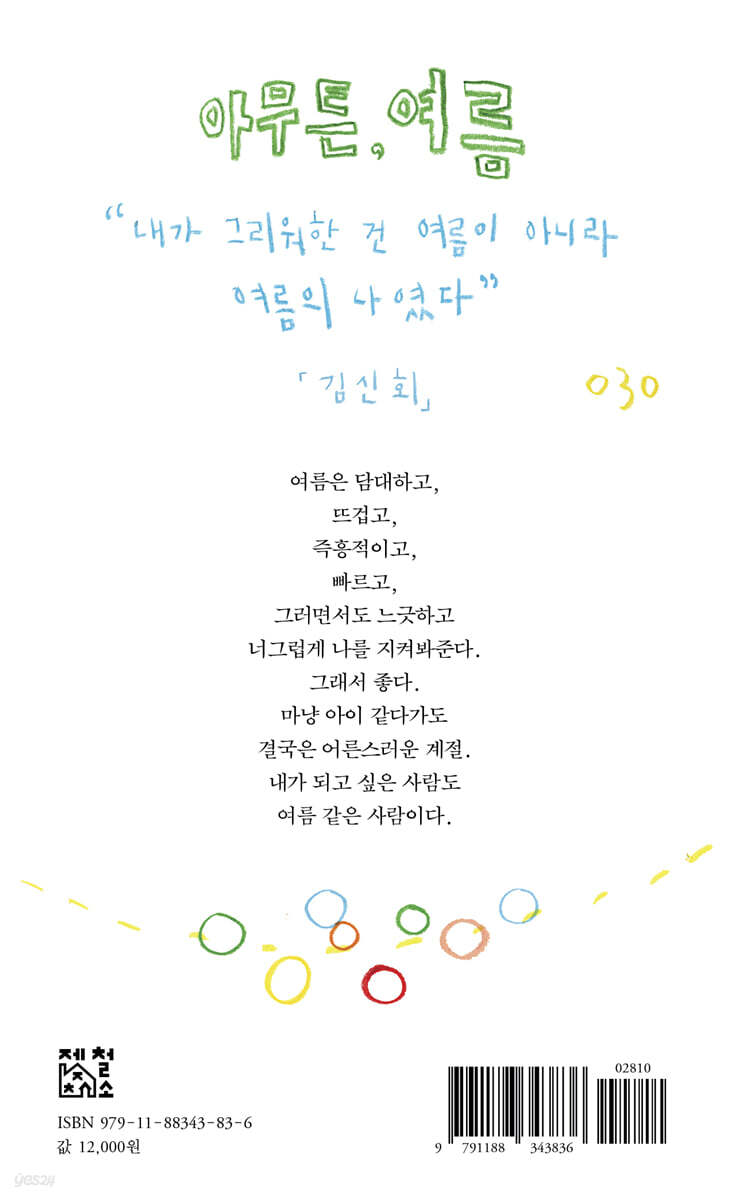 아무튼, 여름
“내가 그리워한 건 여름이 아니라
여름의 나였다”
「김신회」
030
여름은 담대하고,
뜨겁고,
즉흥적이고,
빠르고,
그러면서도 느긋하고
너그럽게 나를 지켜봐준다.
그래서 좋다.
마냥 아이 같다가도
결국은 어른스러운 계절.
내가 되고 싶은 사람도
여름 같은 사람이다.
제철소
ISBN 979-11-88343-83-6
값 12,000원
02810
9 791188 343836
yes24